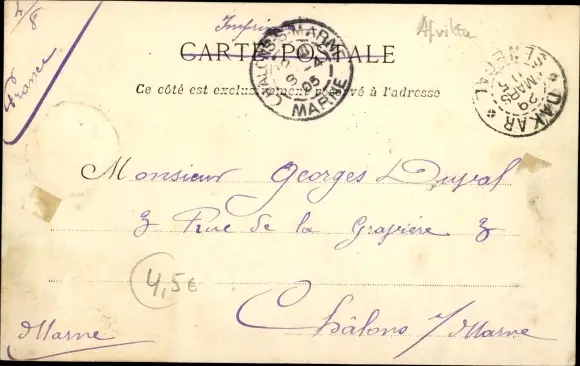 4/8
France
Imprimé
Afrika
CARTE POSTALE
CHALONS-S-MARNE
MARNE
DAKAR
SENEGAL
29 MARS
Ce côté est exclusivement réservé à l'adresse
Monsieur Georges Duval
3 Rue de la Gravière 3
4,5€
Châlons s/Marne
Marne